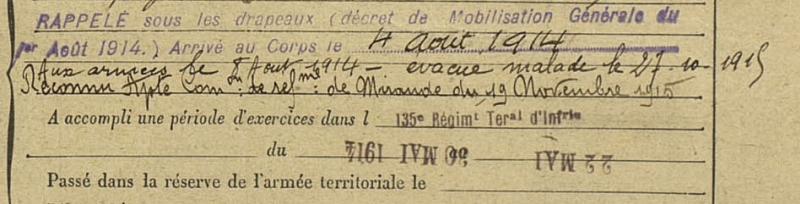 RAPPELÉ sous les drapeaux (décret de Mobilisation Générale du
1er Août 1914.) Arrivé au Corps le 4 Août 1914
Aux armées le Août 1914 - évacué malade le 27-10-1915
Reconnu Apte Com: de réfme: de Mirande du 19 Novembre 1915
A accompli une période d'exercices dans l 135e Régimt Teral d'Infrie
du 22 MAI 30 MAI 1914
Passé dans la réserve de l'armée territoriale le